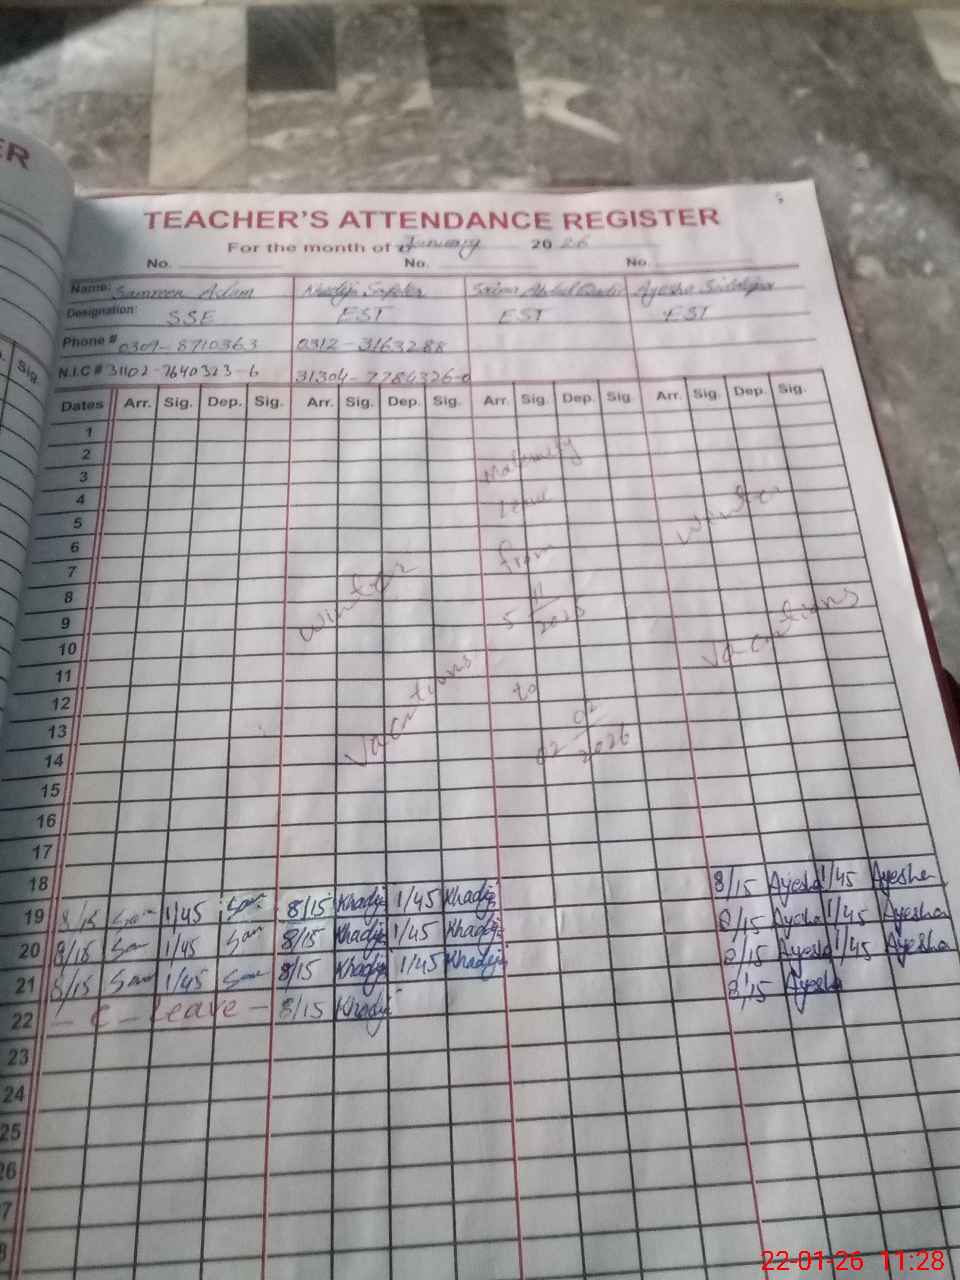 ER
TEACHER'S ATTENDANCE REGISTER
For the month of January 2026
No. No. No.
Name: Samreen Aslam Ayesha
Designation: SSE EST EST EST
Phone # 0309-8710363 0312-3163288
N.I.C # 31102-7640323-6 31304-7784326-0
Sig.
Dates Arr. Sig. Dep. Sig. Arr. Sig. Dep. Sig. Arr. Sig. Dep. Sig. Arr. Sig. Dep. Sig.
1
2 Maternity
3
4 Leave winter
5
6 from
7
8 winter
9 5 11/2025 vacations
10
11
12 vacations to
13
14 02 02/2026
15
16
17
18
19 8/15 San 1/45 San 8/15 Khadij 1/45 Khadij 8/15 Ayesha 1/45 Ayesha
20 8/15 San 1/45 San 8/15 Khadij 1/45 Khadij 8/15 Ayesha 1/45 Ayesha
21 8/15 San 1/45 San 8/15 Khadij 1/45 Khadij 8/15 Ayesha 1/45 Ayesha
22 - C - Leave - 8/15 Khadij 8/15 Ayesha
23
24
25
26
7
8
22-01-26 11:28